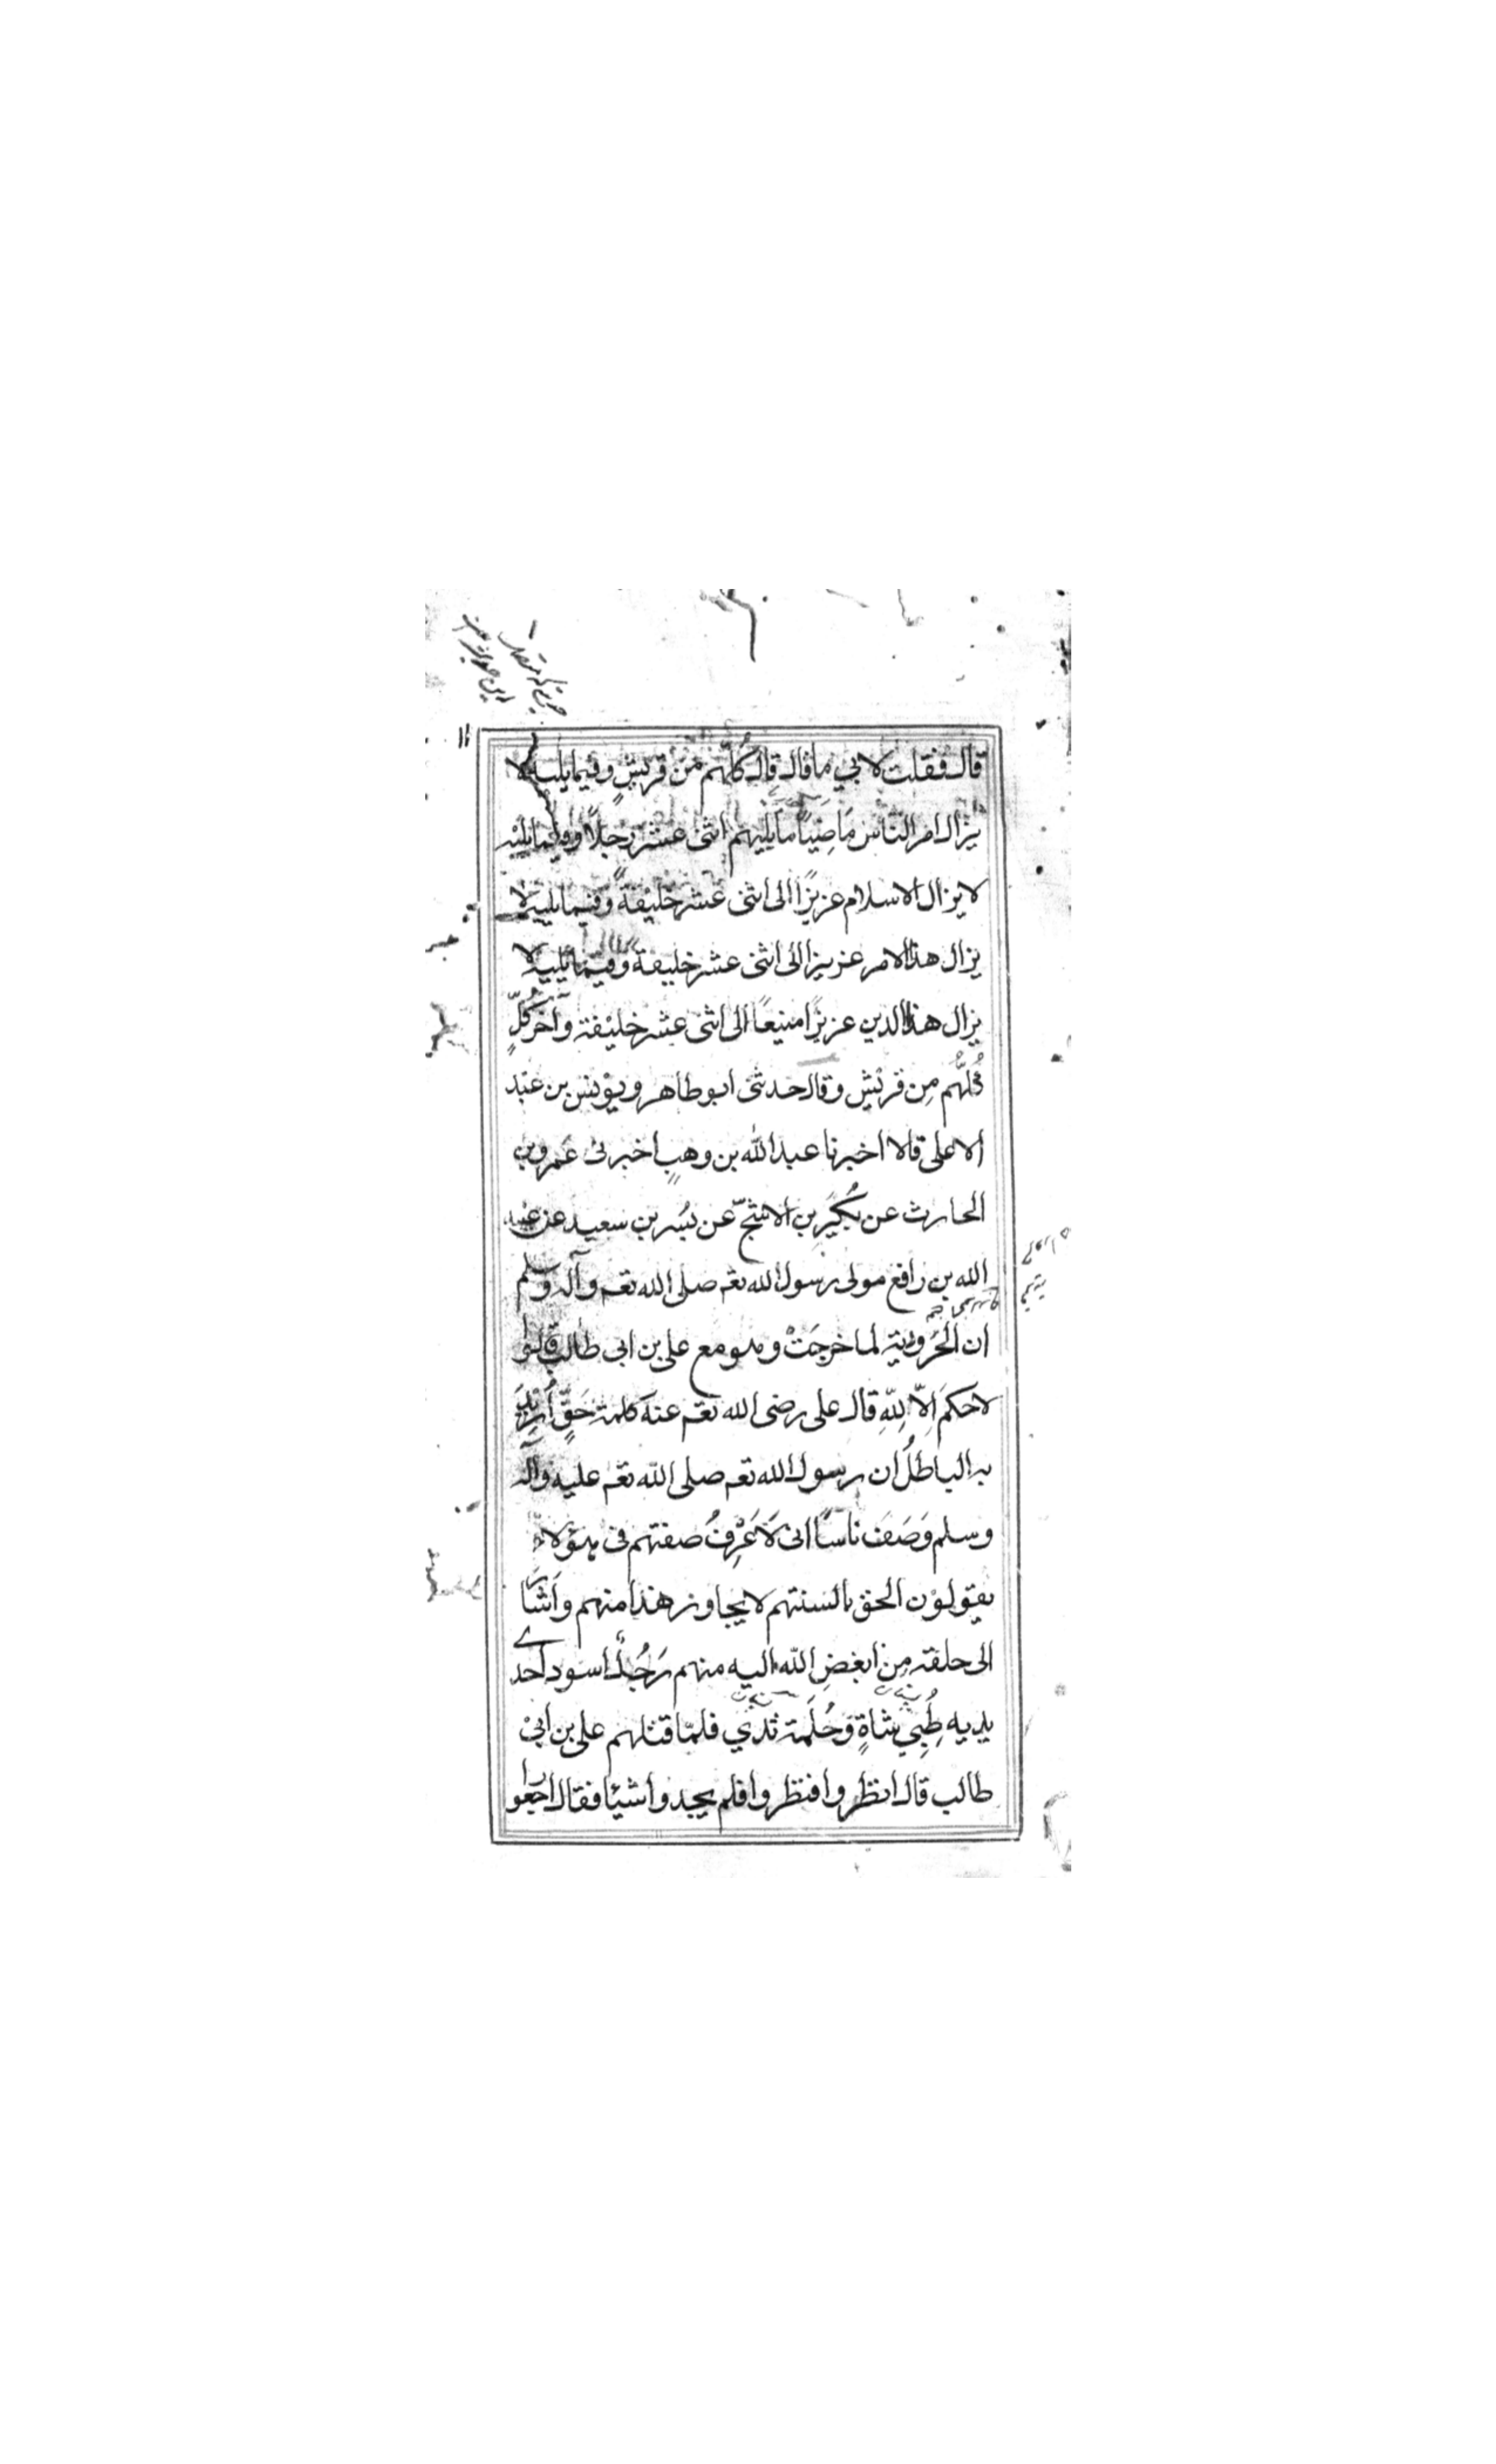 قال فقلت لابي ما قال قال كُلُّهم من قريشٍ وفيما يليه لا
يزال امر الناس مَاضِيًا مَا يَلِيهم اثنى عشر رجلاً وفيما يليه
لا يزال الاسلام عزيزًا الى اثنى عشر خليفةً وفيما يليه لا
يزال هذا الامر عزيزا الى اثنى عشر خليفة وفيما يليه لا
يزال هذا الدين عزيزًا منيعًا الى اثنى عشر خليفة وآخر كُلٍّ
كُلُّهم مِن قريش وقال حدثنى ابو طاهر ويونس بن عبد
الاعلى قالا اخبرنا عبد الله بن وهبٍ اخبرنى عمرو بن
الحارث عن بُكَيرِ بن الاشجّ عن بُسر بن سعيد عن عبيد
الله بن رافع مولى رسول الله تعم صلى الله تعم وآله وسلم
ان الحَرُورِية لما خرجَتْ وهو مع على بن ابى طالب قالوا
لا حكمَ اِلّا لِلّهِ قال على رضى الله تعم عنه كلمة حَقٍّ اُرِيْدَ
به الباطلُ ان رسول الله تعم صلى الله تعم عليه وآله
وسلم وَصَفَ ناسًا انى لَاَعْرِفُ صفتهم فى هؤلاء
يقولوْن الحق بالسنتهم لا يجاوز هذا منهم واَشَارَ
الى حلقه مِن ابغضِ الله اليه منهم رَجُلٌ اسود احدى
يديه طُبِيُ شاةٍ وَحُلَمَة ثدي فلمّا قتلهم على بن ابىْ
طالب قال انظروا فنظروا فلم يجدوا شيئا فقال ارجعوا